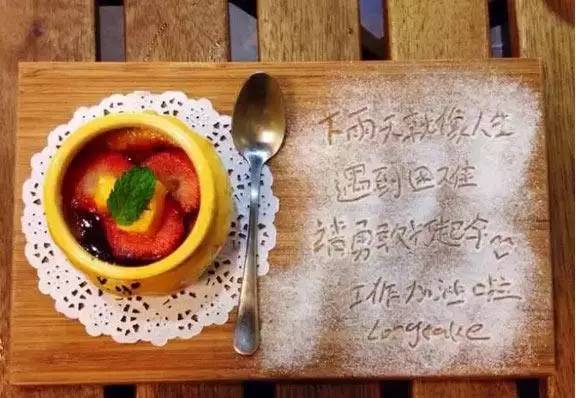 下雨天就像人生
遇到困难
请勇敢打起伞
工作加油啦
Longcake